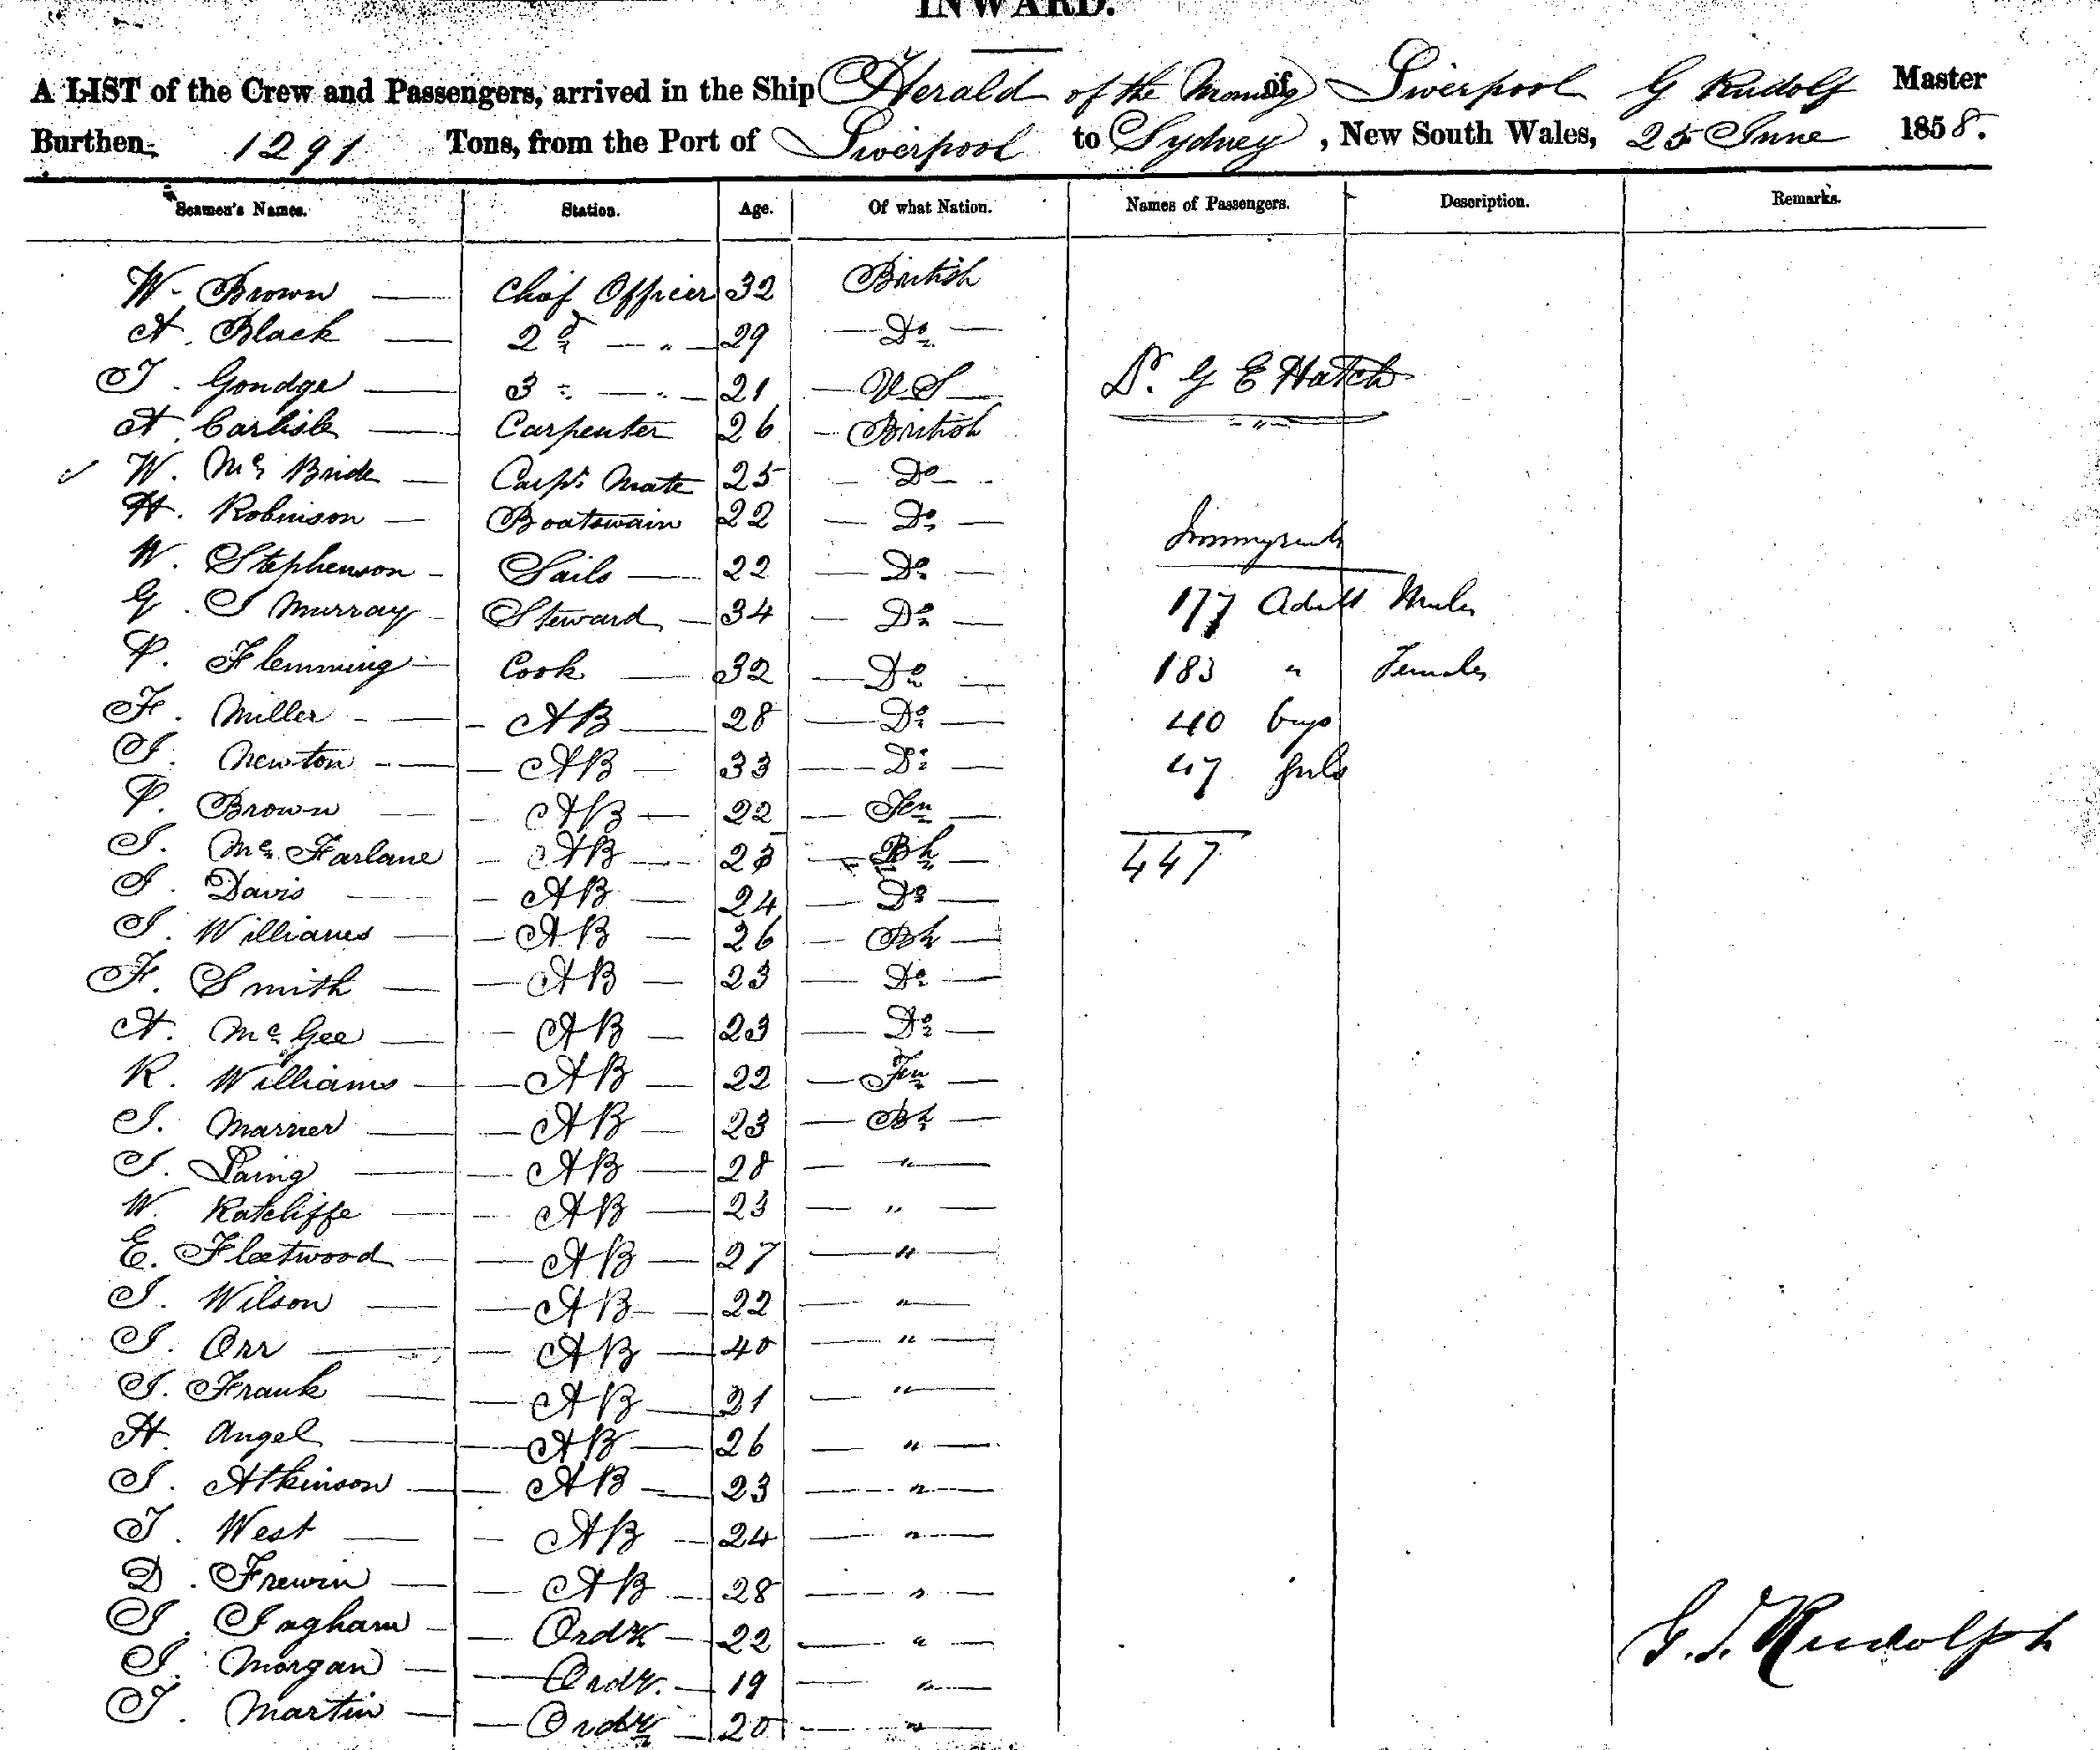 INWARD.
A LIST of the Crew and Passengers, arrived in the Ship Herald of the Morning of Liverpool G Rudolf Master
Burthen 1291 Tons, from the Port of Liverpool to Sydney, New South Wales, 25 June 1858.
Seamen's Names. Station. Age. Of what Nation. Names of Passengers. Description. Remarks.
W. Brown — Chief Officer 32 British
A. Black — 2d — " — 29 — Do —
T. Gondge — 3 " — " — 21 — U S — Dr. G E Hatch
A. Carlisle — Carpenter 26 — British
W. Mc Bride — Carps Mate 25 — Do —
H. Robinson — Boatswain 22 — Do —
W. Stephenson — Sails — 22 — Do — Immigrants
G. I Murray — Steward — 34 — Do — 177 Adult Males
P. Flemming — Cook — 32 — Do — 183 " Females
F. Miller — AB — 28 — Do — 40 boys
I. Newton — AB — 33 — Do — 47 girls
P. Brown — AB — 22 — Fn —
I. Mc Farlane — AB — 23 — Bh — 447
I. Davis — AB — 24 — Do —
I. Williams — AB — 26 — Bh —
F. Smith — AB — 23 — Do —
A. Mc Gee — AB — 23 — Do —
R. Williams — AB — 22 — Fn —
I. Marner — AB — 23 — Bh —
I. Laing — AB — 28 — " —
W. Ratcliffe — AB — 23 — " —
E. Fleetwood — AB — 27 — " —
I. Wilson — AB — 22 — " —
I. Orr — AB — 40 — " —
I. Frank — AB — 21 — " —
H. Angel — AB — 26 — " —
I. Atkinson — AB — 23 — " —
T. West — AB — 24 — " —
D. Frewin — AB — 28 — " —
I. Ingham — Ordy — 22 — " — G. T. Rudolph
I. Morgan — Ordy. — 19 — " —
T. Martin — Ordy — 20 — " —